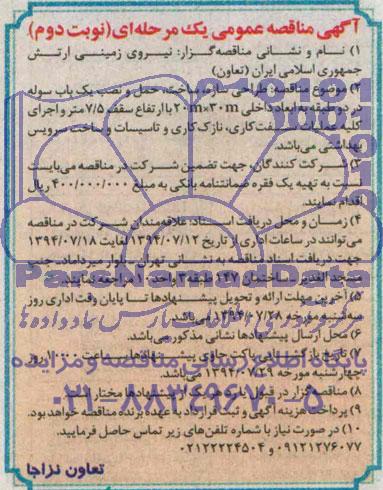 آگهی مناقصه عمومی یک مرحله‌ای (نوبت دوم)
۱) نام و نشانی مناقصه‌گزار: نیروی زمینی ارتش
جمهوری اسلامی ایران (تعاون)
۲) موضوع مناقصه: طراحی سازه، ساخت، حمل و نصب یک باب سوله
در دو طبقه به ابعاد داخلی ۲۰m×۳۰m با ارتفاع سقف ۷/۵ متر و اجرای
کلیه عملیات سفت‌کاری، نازک‌کاری و تاسیسات و ساخت سرویس
بهداشتی می‌باشد.
۳) شرکت کنندگان، جهت تضمین شرکت در مناقصه می‌بایست
نسبت به تهیه یک فقره ضمانتنامه بانکی به مبلغ ۴۰۰/۰۰۰/۰۰۰ ریال
اقدام نمایند.
۴) زمان و محل دریافت اسناد: علاقه‌مندان شرکت در مناقصه
می‌توانند در ساعات اداری از تاریخ ۱۳۹۴/۰۷/۱۲ لغایت ۱۳۹۴/۰۷/۱۸
جهت دریافت اسناد مناقصه به نشانی تهران ـ بلوار میرداماد، جنب
مسجد الغدیر ـ ساختمان ۱۴۷ طبقه ۳ واحد ۱۰ مراجعه نمایند.
۵) آخرین مهلت ارائه و تحویل پیشنهادها تا پایان وقت اداری روز
سه‌شنبه مورخه ۱۳۹۴/۰۷/۲۸ می‌باشد.
۶) محل ارسال پیشنهادها نشانی مذکور می‌باشد.
۷) تاریخ بازگشایی پاکت حاوی پیشنهادها ساعت ۱۰:۰۰ روز
چهارشنبه مورخه ۱۳۹۴/۰۷/۲۹ می‌باشد.
۸) مناقصه‌گزار در قبول یا رد هر یک از پیشنهادها مختار است.
۹) پرداخت هزینه آگهی و ثبت قرارداد به عهده برنده مناقصه خواهد بود.
۱۰) در صورت نیاز با شماره تلفن‌های زیر تماس حاصل فرمایید.
۰۹۱۲۱۲۷۶۰۷۷ و ۰۲۱۲۲۲۲۴۵۰۴
تعاون نزاجا
ParsNamadData
پایگاه اطلاع رسانی مناقصه و مزایده
۰۲۱-۸۸۳۴۹۶۷۰-۵